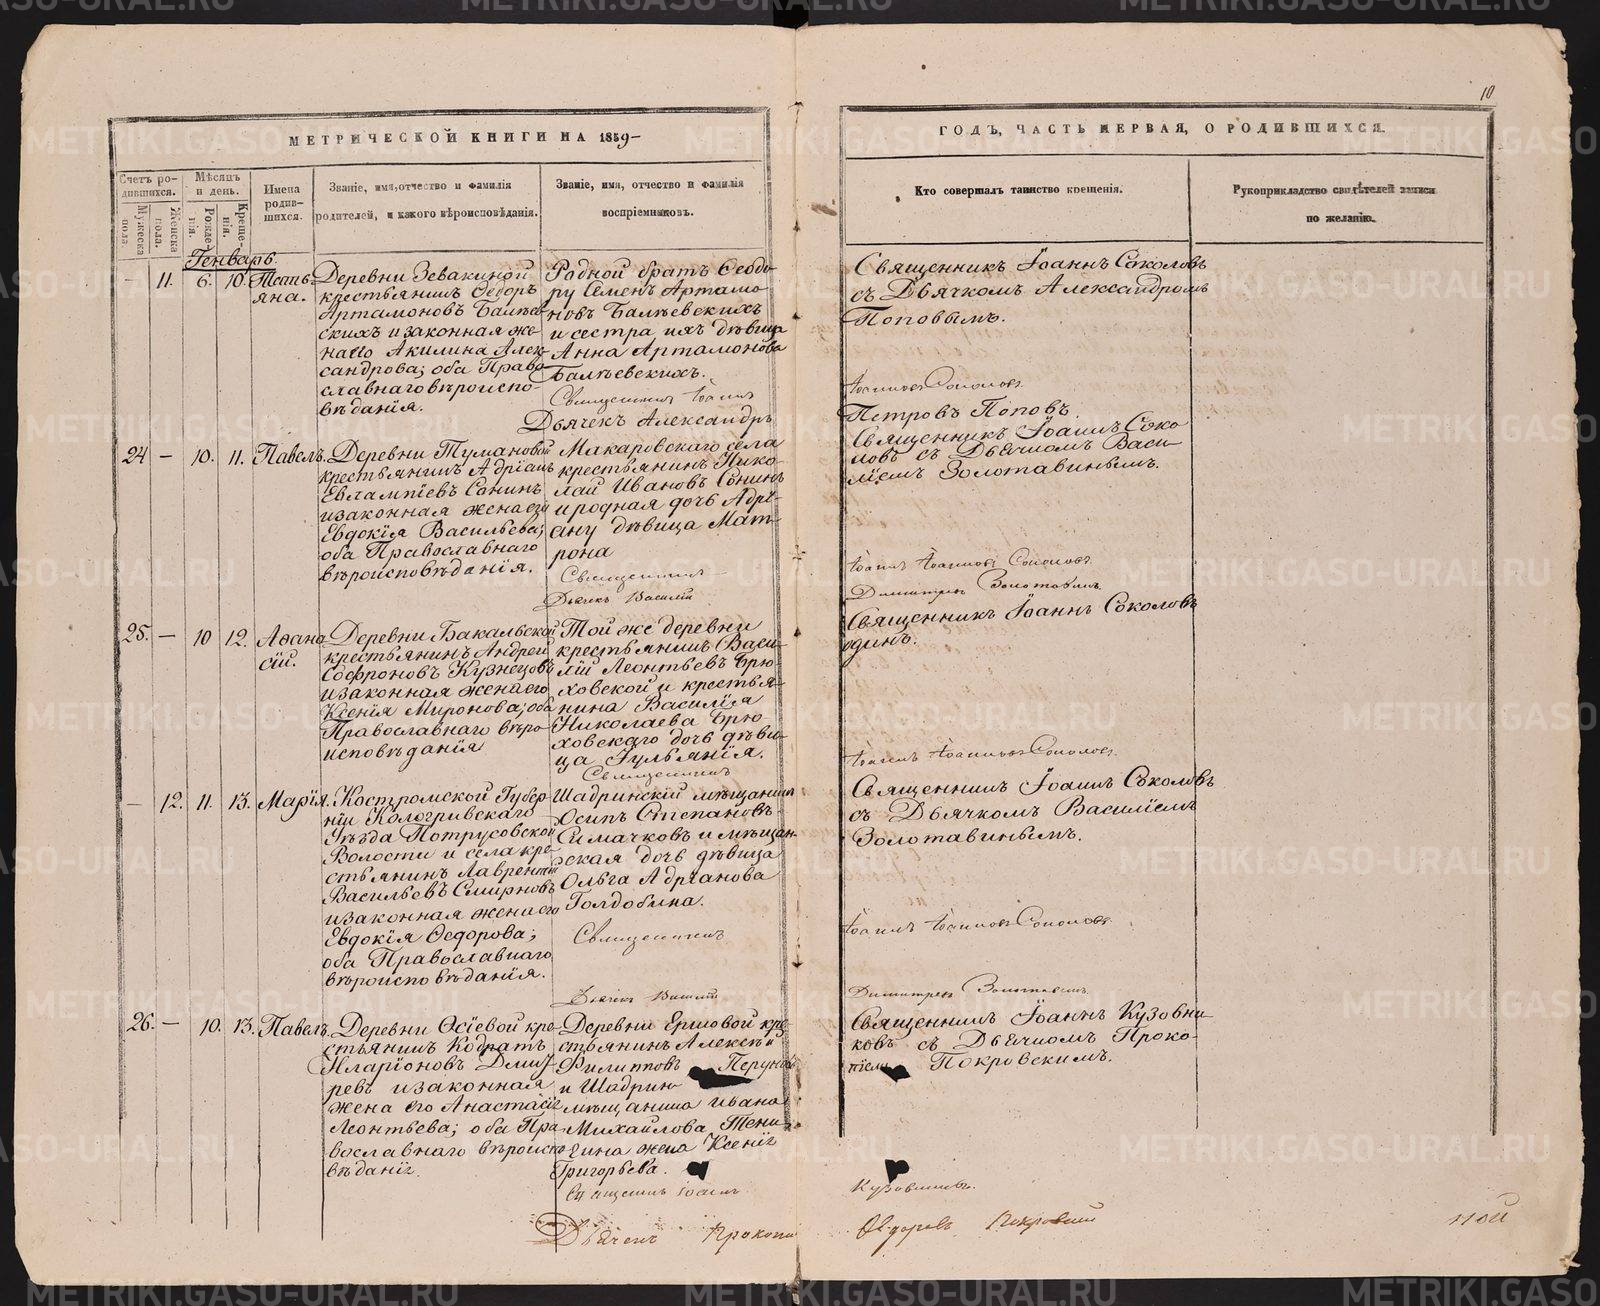 10
МЕТРИЧЕСКОЙ КНИГИ НА 1859-
ГОДЪ, ЧАСТЬ ПЕРВАЯ, О РОДИВШИХСЯ.
Счетъ ро-
дившихся.
Мужеска
пола.
Женска
пола.
Мѣсяцъ
и день.
Рожде-
нія.
Креще-
нія.
Имена
родив-
шихся.
Званіе, имя, отчество и фамилія
родителей, и какого вѣроисповѣданія.
Званіе, имя, отчество и фамилія
воспріемниковъ.
Кто совершалъ таинство крещенія.
Рукоприкладство свидѣтелей записи
по желанію.
Генварь.
– 11. 6. 10. Тать-
яна.
Деревни Зевакиной
крестьянинъ Ѳедоръ
Артамоновъ Балѣев-
скихъ и законная же-
на его Акилина Алек-
сандрова; оба Право-
славнаго вѣроиспо-
вѣданія.
Родной братъ Ѳеодо-
ру Семенъ Артамо-
новъ Балѣевскихъ
и сестра ихъ дѣвица
Анна Артамонова
Балѣевскихъ.
Священникъ Іоаннъ
Дьячекъ Александръ
Священникъ Іоаннъ Соколовъ
съ Дьячкомъ Александромъ
Поповымъ.
Іоанновъ Соколовъ
Петровъ Поповъ
24 – 10. 11. Павелъ.
Деревни Тумановой
крестьянинъ Адріанъ
Евлампіевъ Сонинъ
и законная жена его
Евдокія Васильева;
оба Православнаго
вѣроисповѣданія.
Макаровскаго села
крестьянинъ Нико-
лай Ивановъ Сонинъ
и родная дочь Адрі-
ану дѣвица Мат-
рона
Священникъ
Дьячекъ Василій
Священникъ Іоаннъ Соко
ловъ съ Дьячкомъ Васи-
ліемъ Золотавинымъ.
Іоаннъ Іоанновъ Соколовъ
Димитревъ Золотавинъ
25. – 10 12. Аѳана
сій.
Деревни Бакальской
крестьянинъ Андрей
Софроновъ Кузнецовъ
и законная жена его
Ксенія Миронова; оба
Православнаго вѣро-
исповѣданія
Той же деревни
крестьянинъ Васи-
лій Леонтьевъ Брю-
ховской и крестья-
нина Василія
Николаева Брю
ховскаго дочь дѣви-
ца Іульянія.
Священникъ
Священникъ Іоаннъ Соколовъ
одинъ.
Іоаннъ Іоанновъ Соколовъ
– 12. 11. 13. Марія.
Костромской Губер-
ніи Кологривскаго
Уѣзда Потрусовской
Волости и села кре-
стьянинъ Лаврентій
Васильевъ Смирновъ
и законная жена его
Евдокія Ѳедорова;
оба Православнаго
вѣроисповѣданія.
Шадринскій мѣщанинъ
Осипъ Степановъ
Симачковъ и мѣщан-
ская дочь дѣвица
Ольга Адріанова
Голдобина.
Священникъ
Дьячекъ Василій
Священникъ Іоаннъ Соколовъ
съ Дьячкомъ Василіемъ
Золотавинымъ.
Іоаннъ Іоанновъ Соколовъ
Димитревъ Золотавинъ
26. – 10. 13. Павелъ.
Деревни Осіевой кре-
стьянинъ Кодратъ
Иларіоновъ Дмит-
ревъ и законная
жена его Анастасія
Леонтьева; оба Пра-
вославнаго вѣроиспо-
вѣданія.
Деревни Ершовой кре-
стьянинъ Алексѣй
Филипповъ
и Шадрин-
мѣщанина Ивана
Михайлова
жена Ксенія
Григорьева.
Священникъ Іоаннъ
Дьячекъ Прокопій
Священникъ Іоаннъ Кузовни-
ковъ съ Дьячкомъ Проко-
піемъ Покровскимъ.
Кузовниковъ.
Ѳедоровъ Покровскій